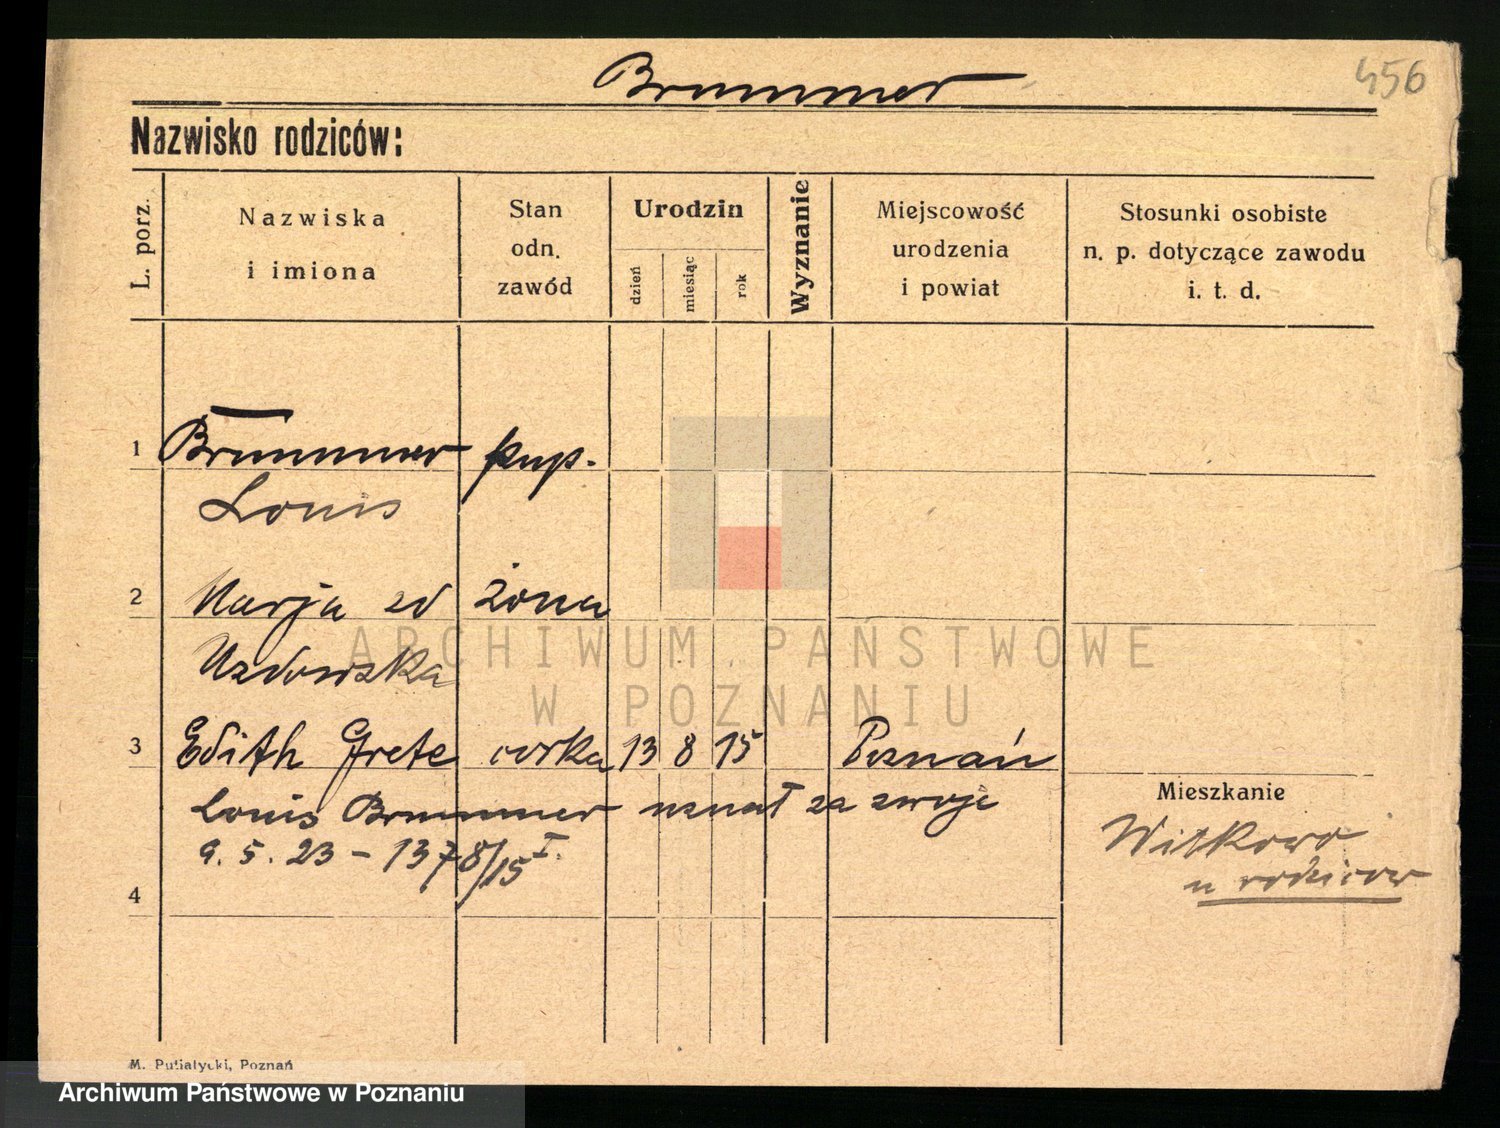 Brummer
456
Nazwisko rodziców:
L. porz.
Nazwiska
i imiona
Stan
odn.
zawód
Urodzin
dzień
miesiąc
rok
Wyznanie
Miejscowość
urodzenia
i powiat
Stosunki osobiste
n. p. dotyczące zawodu
i. t. d.
1 Brummer kup.
Louis
2 Marja zd żona
Uzdowska
3 Edith Grete corka 13 8 15 Poznań
Louis Brummer uznał za swoje
9. 5. 23 - 1378/15 I.
4
Mieszkanie
Witkowo
u rodzicow
ARCHIWUM PAŃSTWOWE
W POZNANIU
M. Putiatycki, Poznań
Archiwum Państwowe w Poznaniu